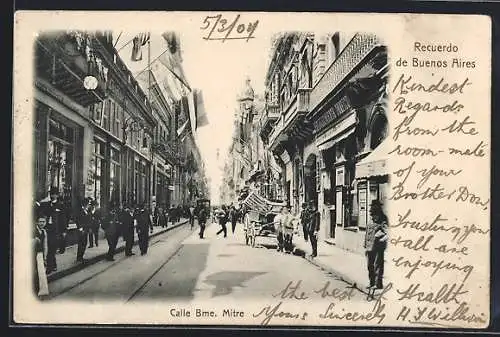 5/3/04
Recuerdo
de Buenos Aires
Kindest
Regards
from the
room-mate
of your
Brother Don,
trusting you
& all are
enjoying
the best of Health
Yours Sincerely H.J.
Calle Bme. Mitre